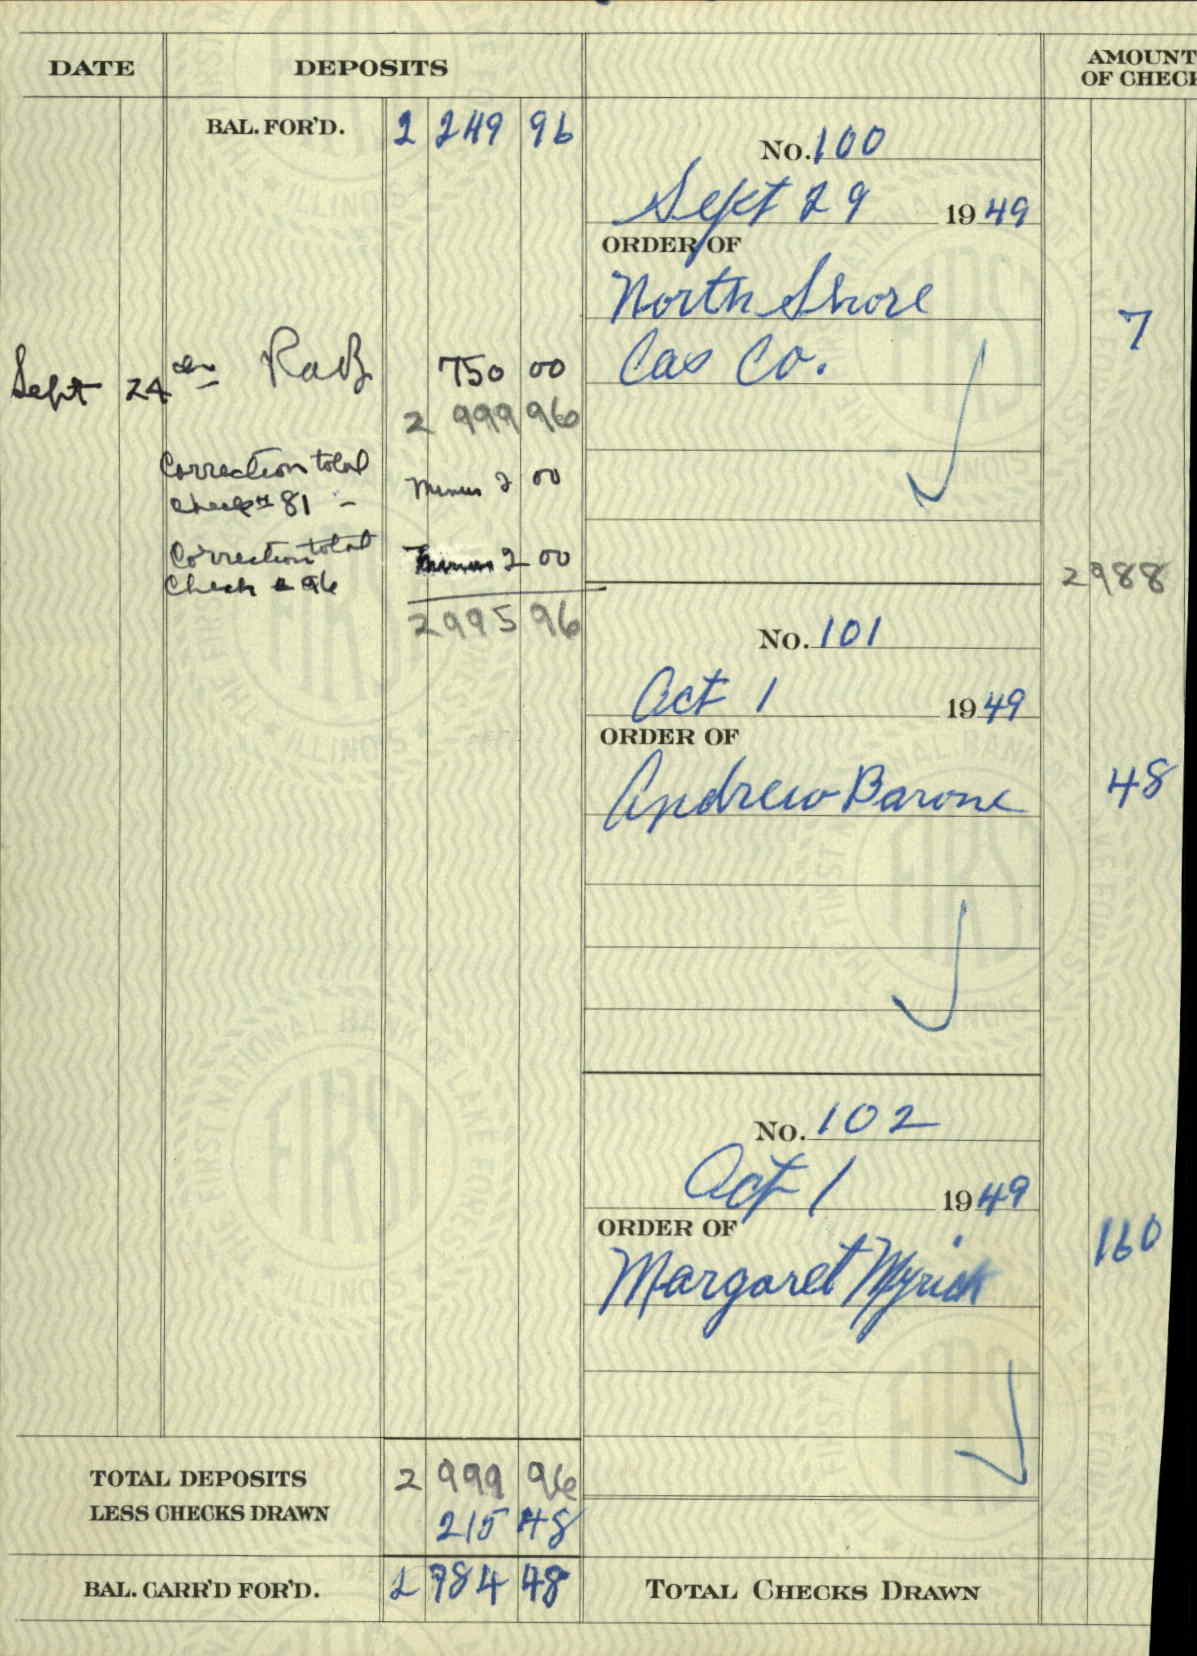 DATE DEPOSITS AMOUNT OF CHECK
BAL. FOR'D. 2 249 96
No. 100
Sept 29 1949
ORDER OF
North Shore
Gas Co. 7
Sept 24 750 00
2 999 96
Correction total
check # 81 - minus 2 00
Correction total
Check # 96 minus 2 00
2995 96
2988
No. 101
Oct 1 1949
ORDER OF
Andrew Barone 48
No. 102
Oct 1 1949
ORDER OF
Margaret Myrick 160
TOTAL DEPOSITS 2 999 96
LESS CHECKS DRAWN 215 48
BAL. CARR'D FOR'D. 2 784 48
TOTAL CHECKS DRAWN